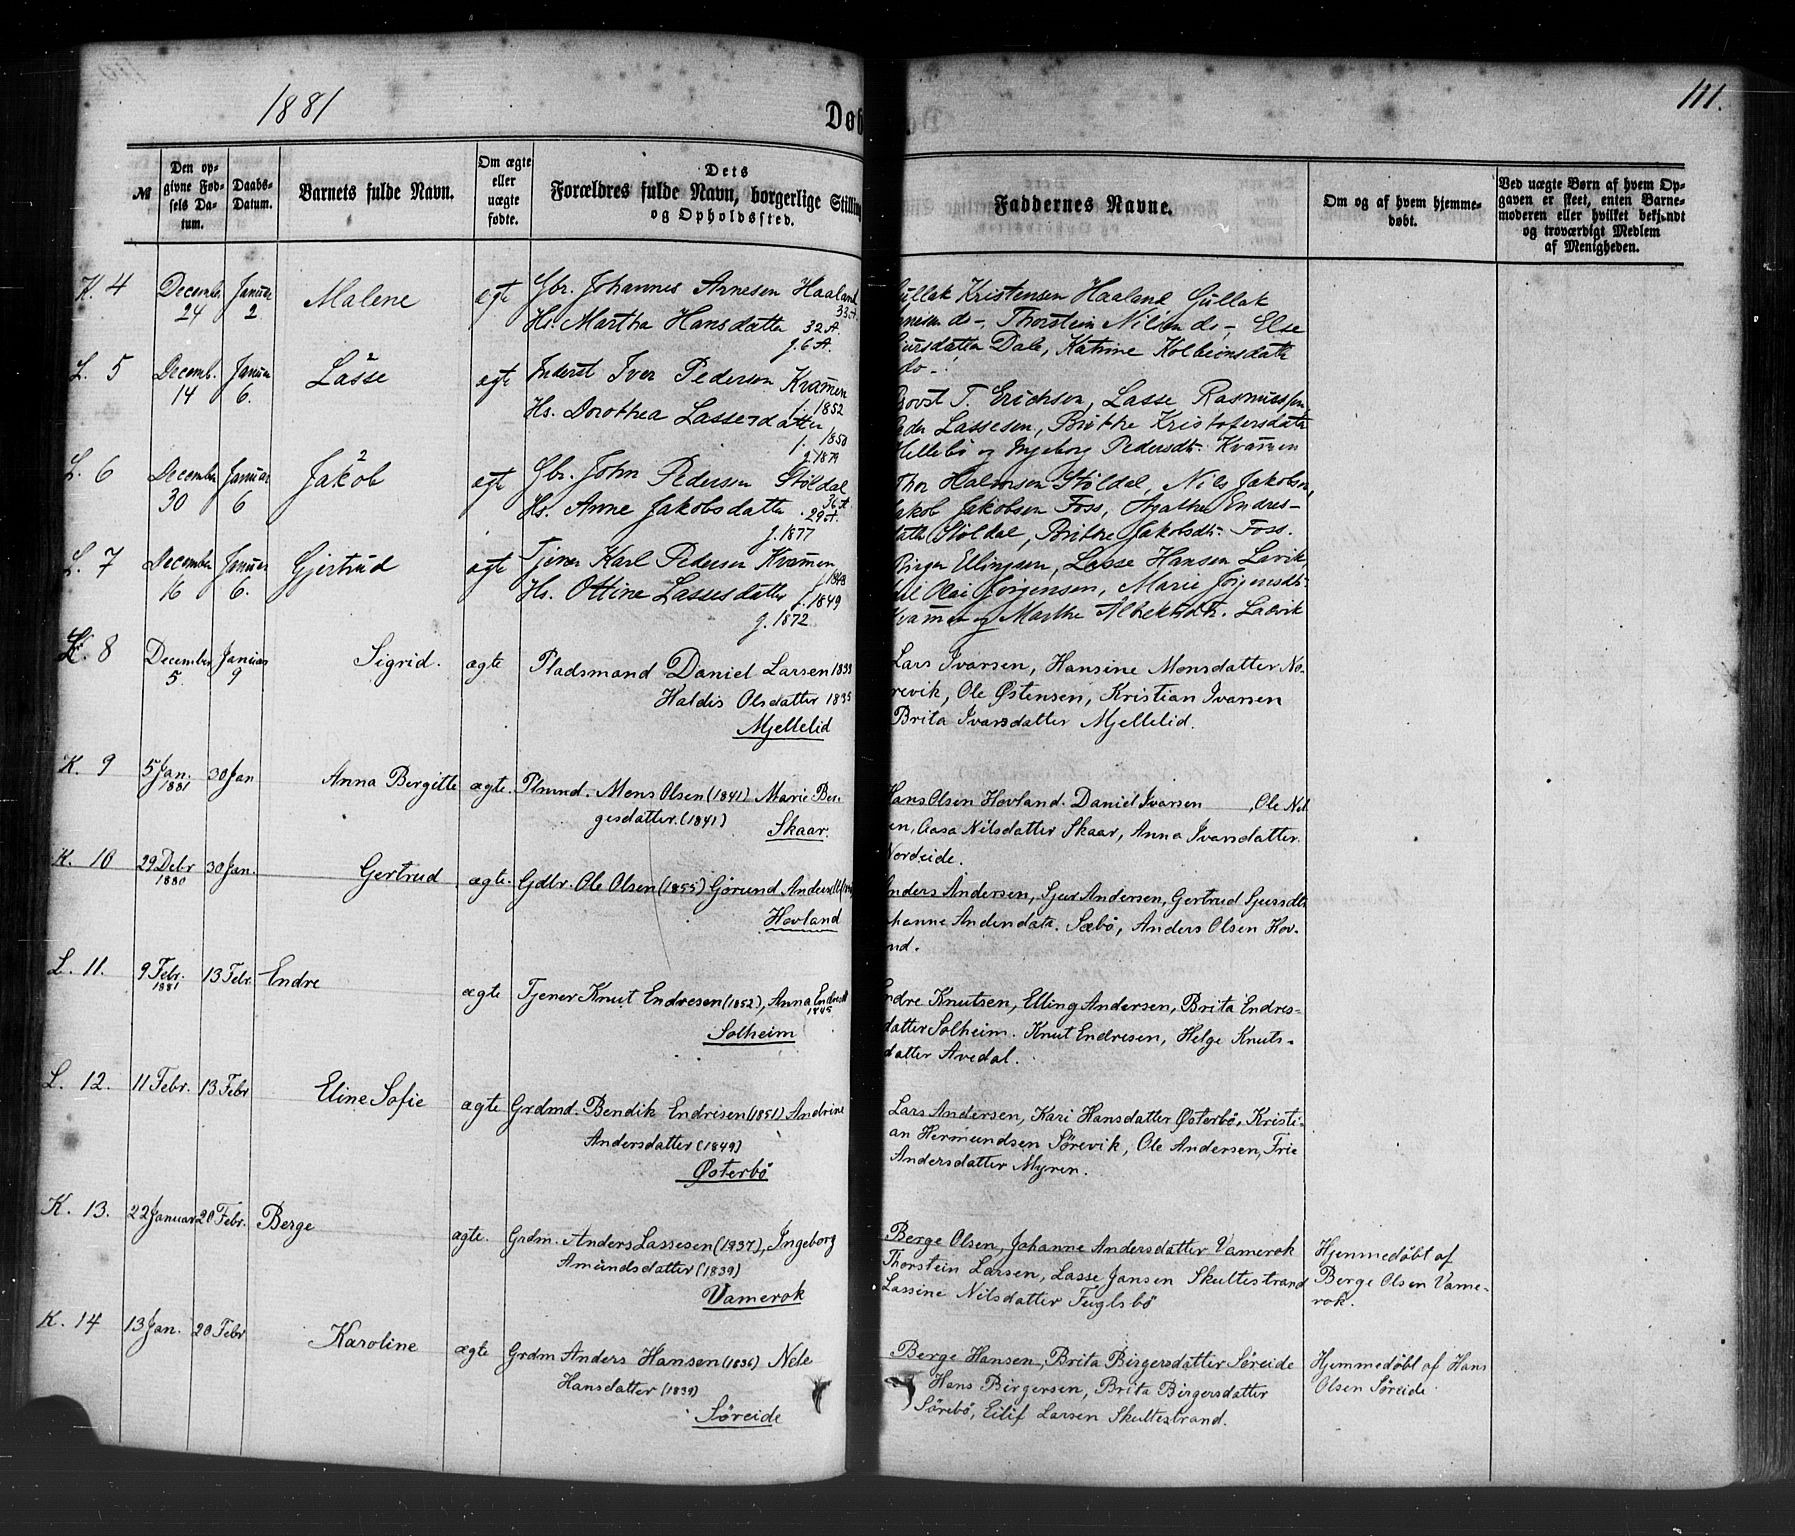 1881
111.
Døb
№
Den op-
givne Fød-
sels Da-
tum.
Daabs-
Datum.
Barnets fulde Navn.
Om ægte
eller
uægte
fødte.
Dets
Forældres fulde Navn, borgerlige Stilling
og Opholdssted.
Faddernes Navne.
Om og af hvem hjemme-
døbt.
Ved uægte Børn af hvem Op-
gaven er skeet, enten Barne-
moderen eller hvilket bekjendt
og troværdigt Medlem
af Menigheden.
K. 4
December
24
Januar
2
Malene
ægte
Gbr. Johannes Arnesen Haaland
33 A.
Hs. Martha Hansdatter 32 A.
g. 6 A.
Gullak Kristensen Haaland Gullak
do-, Thorstein Nilsen do-, Else
Dale, Katrine Kolbeinsdatter
do-
L. 5
Decemb.
14
Januar
6.
Lasse
ægte
Inderst Iver Pedersen Kvamen
f. 1852
Hs. Dorothea Lassesdatter
f. 1850
g. 1879
Provst T. Erichsen, Lasse Rasmussen,
Peder Lassesen, Brithe Kristofersdatter
Hellebø og Ingeborg Pedersdtr. Kvamen
L. 6
December
30
Januar
6
Jakob
ægte
Gbr. John Pedersen Støldal
36 A
Hs. Anne Jakobsdatter 29 A.
g. 1877
Thor Halvorsen Støldal, Nils Jakobsen,
Jakob Jakobsen Foss, Agathe Endres-
datter Støldal, Brithe Jakobsdtr. Foss.
L. 7
December
16
Januar
6.
Gjertrud
ægte
Tjener Karl Pedersen Kvamen
f. 1848
Hs. Ottine Lassesdatter f. 1849
g. 1872
Birger Ellingsen, Lasse Hansen Lavik,
Olai Jørgensen, Marie Jørgensdtr.
Kvamen og Marthe Albertsdtr. Lavik
K. 8
December
5
Januar
9
Sigrid.
ægte
Pladsmand Daniel Larsen 1838
Haldis Olsdatter 1835
Mjellelid
Lars Ivarsen, Hansine Monsdatter No-
revik, Ole Østensen, Kristian Ivarsen
Brita Ivarsdatter Mjellelid.
K. 9
5 Jan.
1881
30 Jan
Anna Bergitte
ægte.
Plmnd. Mons Olsen (1841) Marie Ber-
gesdatter. (1841)
Skaar.
Hans Olsen Hovland. Daniel Ivarsen , Ole Nil
en, Aasa Nilsdatter Skaar, Anna Ivarsdatter
Nordeide.
K. 10
29 Debr
1880
30 Jan.
Gertrud
ægte.
Gdbr. Ole Olsen (1855) Gjørund
Hovland
Anders Andersen, Sjur Andersen, Gertrud Sjursdtr
Johanne Andersdatr. Sæbø, Anders Olsen Hov-
land.
L. 11.
9 Febr.
1881
13 Febr.
Endre
ægte
Tjener Knut Endresen (1852), Anna Endresdt
1845
Solheim
Endre Knutsen, Elling Andersen, Brita Endres-
datter Solheim. Knut Endresen, Helge Knuts-
datter Avedal.
L. 12.
11 Febr.
13 Febr
Eline Sofie
ægte
Grdmd. Bendik Endrisen (1851) Andrine
Andersdatter (1849)
Østerbø
Lars Andersen, Kari Hansdatter Østerbø, Kristi-
an Hermundsen Sørevik, Ole Andersen, Frie
Andersdatter Myren.
K. 13.
22 Januar
20 Febr.
Berge
ægte.
Grdm. Anders Lassesen (1837), Ingeborg
Amundsdatter (1839)
Vamerok
Berge Olsen, Johanne Andersdatter Vamerok
Thorstein Larsen, Lasse Jansen Skultestrand
Lassine Nilsdatter Fuglsbø
Hjemmedøbt af
Berge Olsen Vame-
rok.
K. 14
13 Jan.
20 Febr
Karoline
ægte
Grdm Anders Hansen (1836) Nele
Hansdatter (1839)
Søreide
Berge Hansen, Brita Birgersdatter Søreide
Hans Birgersen, Brita Birgersdatter
Sørebø, Eilif Larsen Skultestrand.
Hjemmedøbt af Hans
Olsen Søreide.